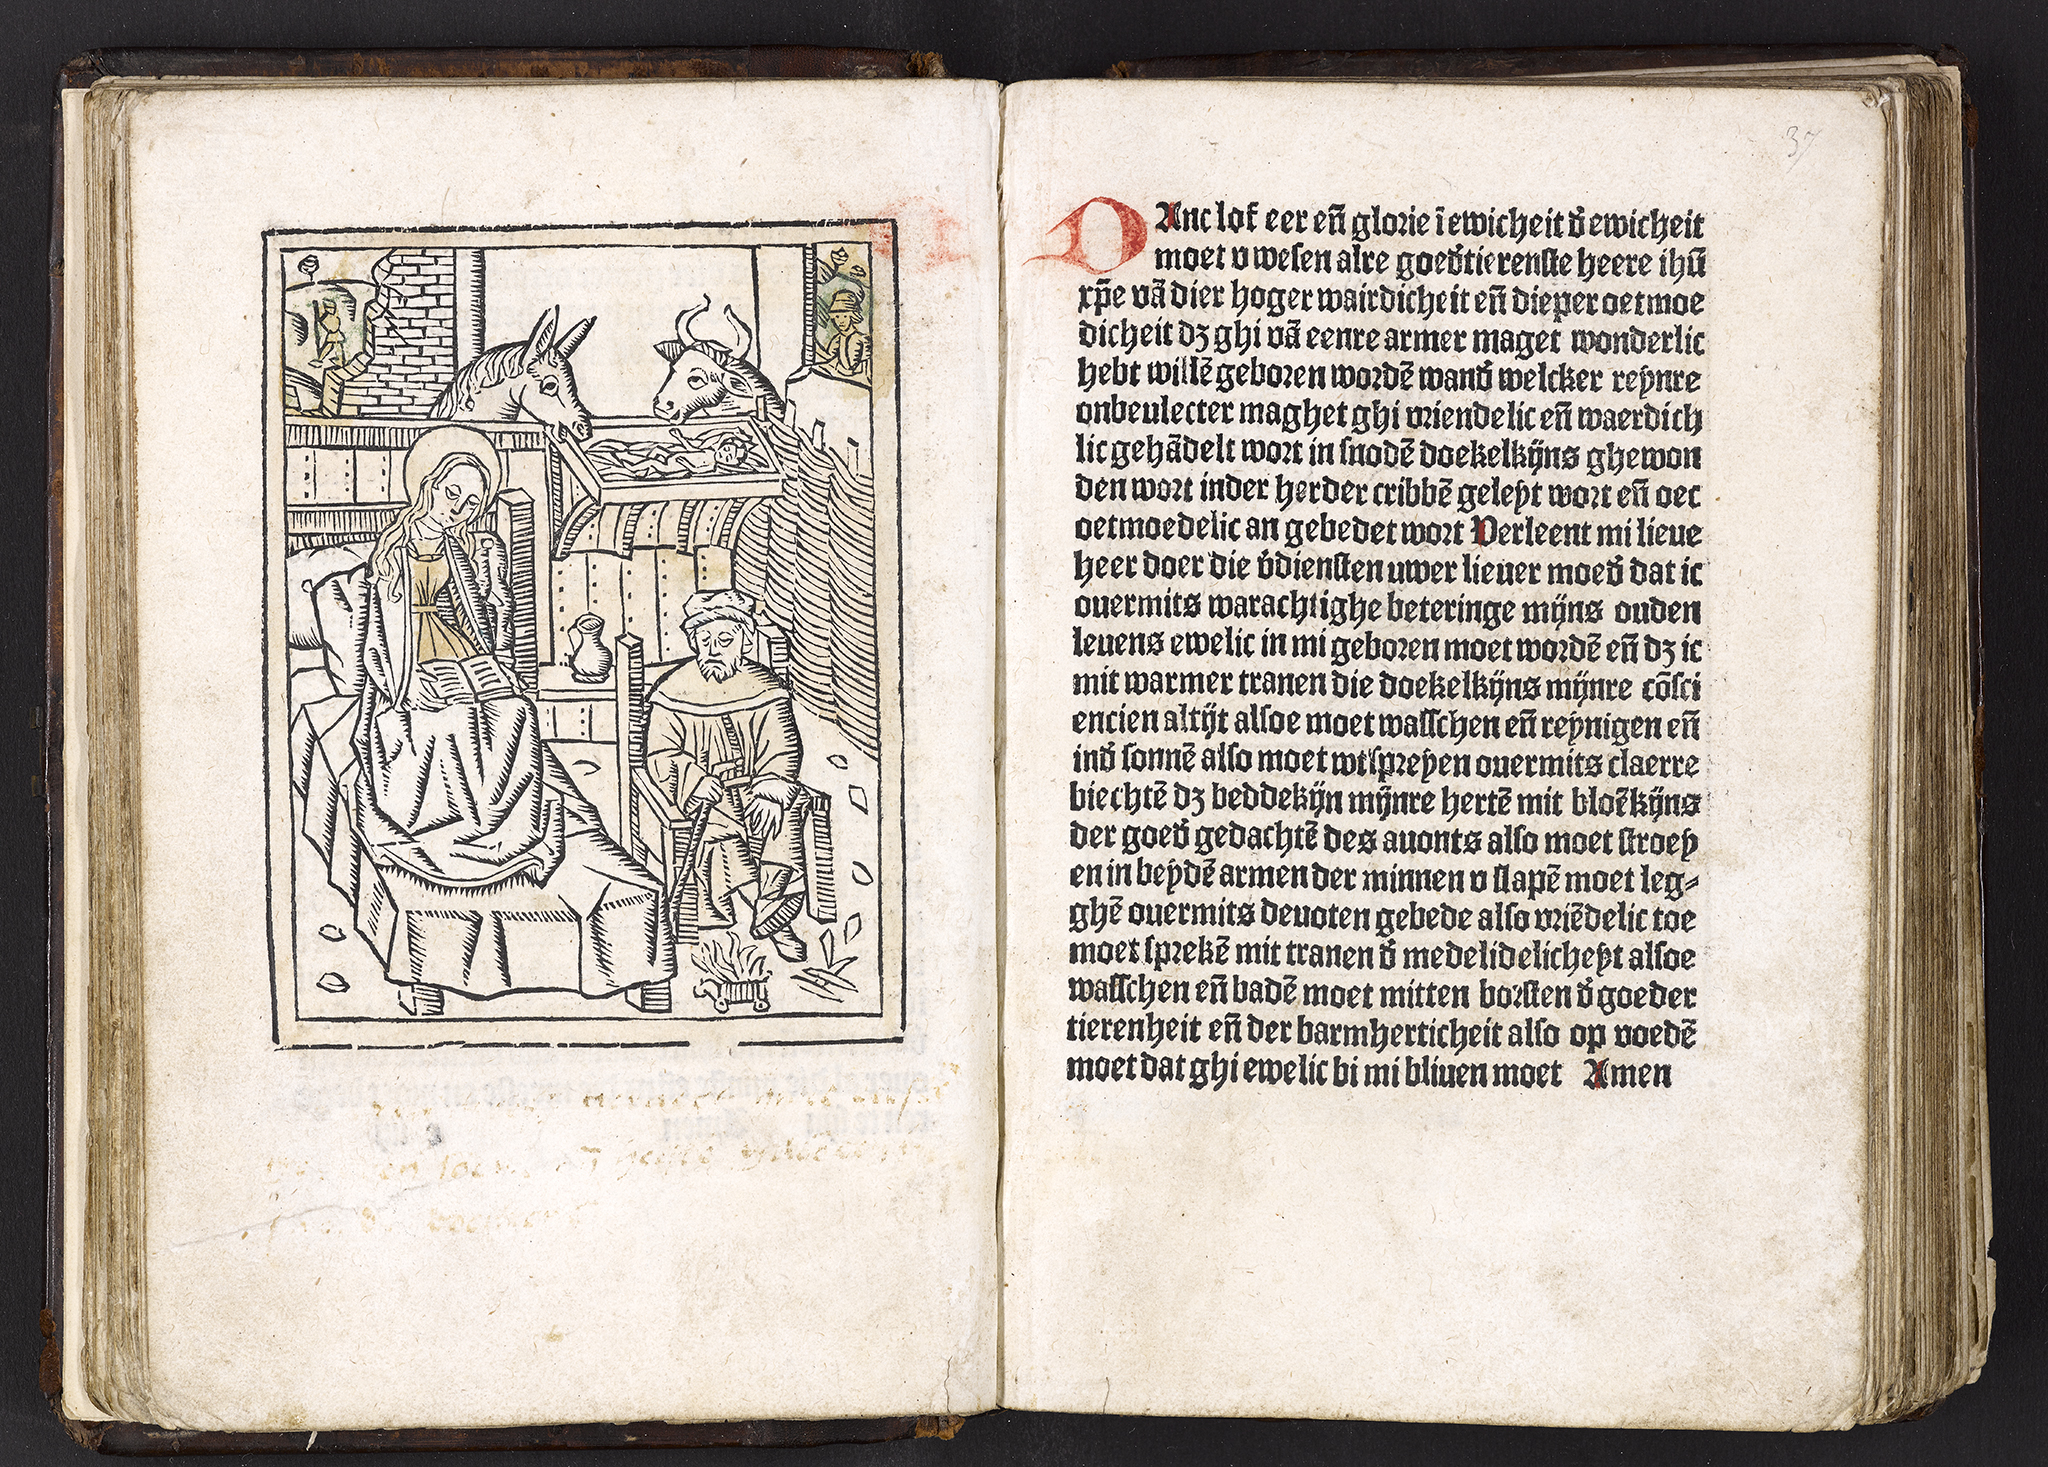 37
DAnc lof eer eñ glorie ī ewicheit đ ewicheit
moet v wesen alre goeđtierenste heere ihū
xp̄e vā dier hoger wairdicheit eñ dieper oetmoe
dicheit dʒ ghi vā eenre armer maget wonderlic
hebt willē geboren wordē wanđ welcker reynre
onbeulecter maghet ghi vriendelic eñ waerdich
lic gehādelt wort in snodē doekelkijns ghewon
den wort inder herder cribbē geleyt wort eñ oec
oetmoedelic an gebedet wort Verleent mi lieue
heer doer die v̄diensten uwer lieuer moeđ dat ic
ouermits warachtighe beteringe mijns ouden
leuens ewelic in mi geboren moet wordē eñ dʒ ic
mit warmer tranen die doekelkijns mijnre cōsci
encien altijt alsoe moet wasschen eñ reynigen eñ
inđ sonnē also moet wtspreyen ouermits claerre
biechtē dʒ beddekijn mijnre hertē mit bloēkijns
der goeđ gedachtē des auonts also moet stroey
en in beydē armen der minnen v slapē moet leg⸗
ghē ouermits deuoten gebede also vriēdelic toe
moet sprekē mit tranen đ medelidelicheyt alsoe
wasschen eñ badē moet mitten borsten đ goeder
tierenheit eñ der barmherticheit also op voedē
moet dat ghi ewelic bi mi bliuen moet Amen